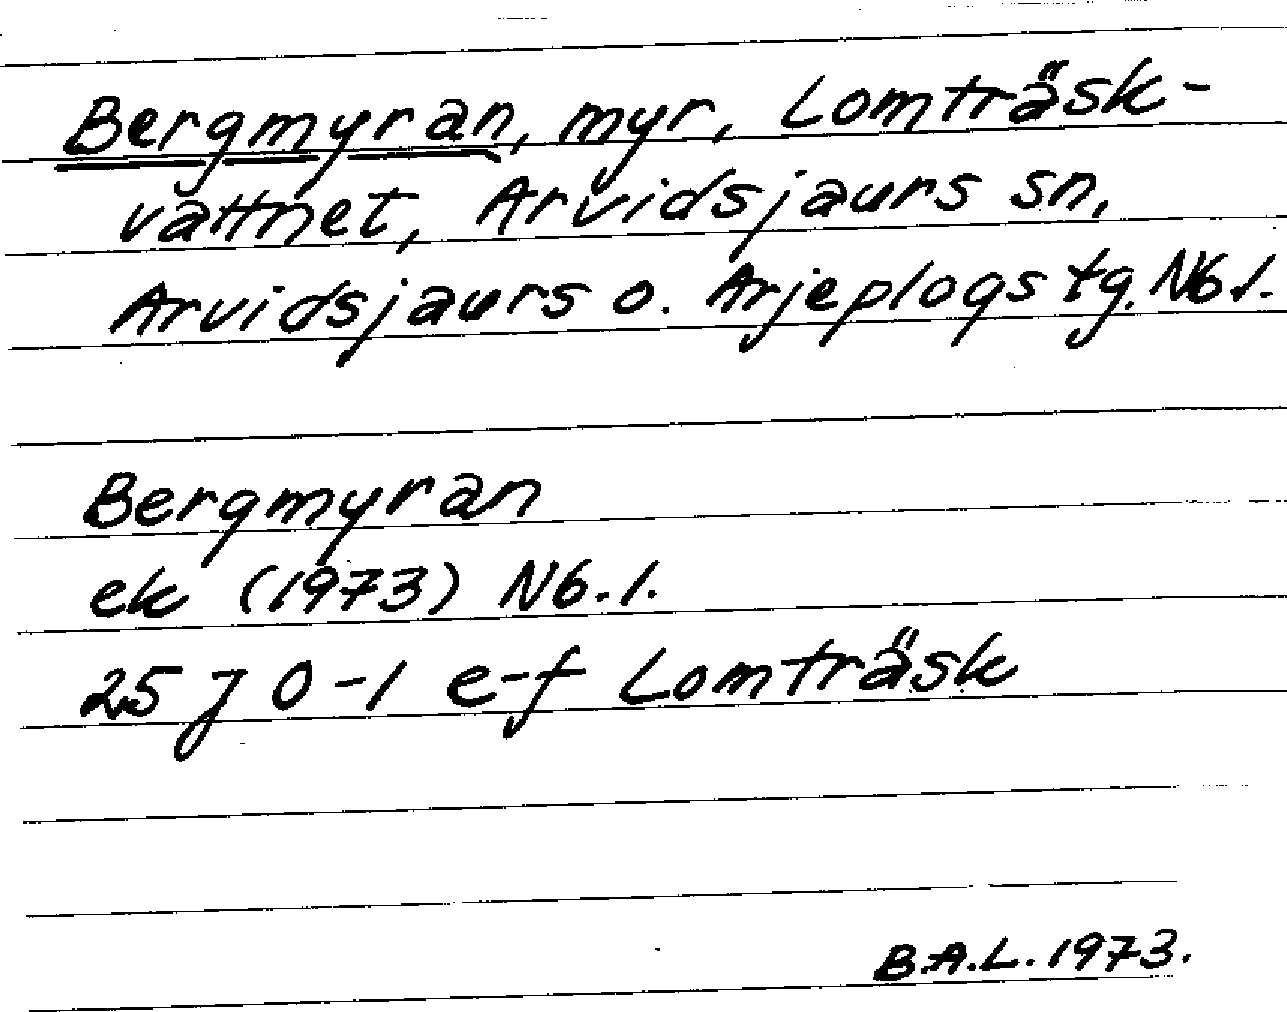 Bergmyran, myr, Lomträsk-
vattnet, Arvidsjaurs sn,
Arvidsjaurs o. Arjeplogs tg. Nb l.
Bergmyran
ek (1973) Nb. l.
25 J 0-1 e-f Lomträsk
B.A.L. 1973.